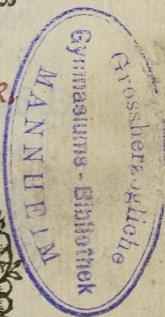 Grossherzogliche
Gymnasiums-Bibliothek
MANNHEIM
R.